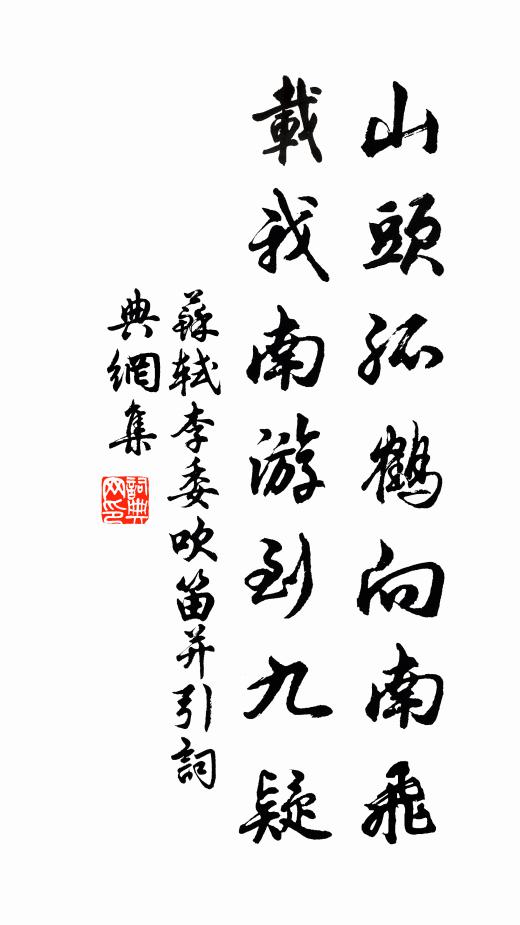 山頭孤鶴向南飛
載我南游到九疑
蘇軾李委吹笛并引詞
典網集
詞典
网印